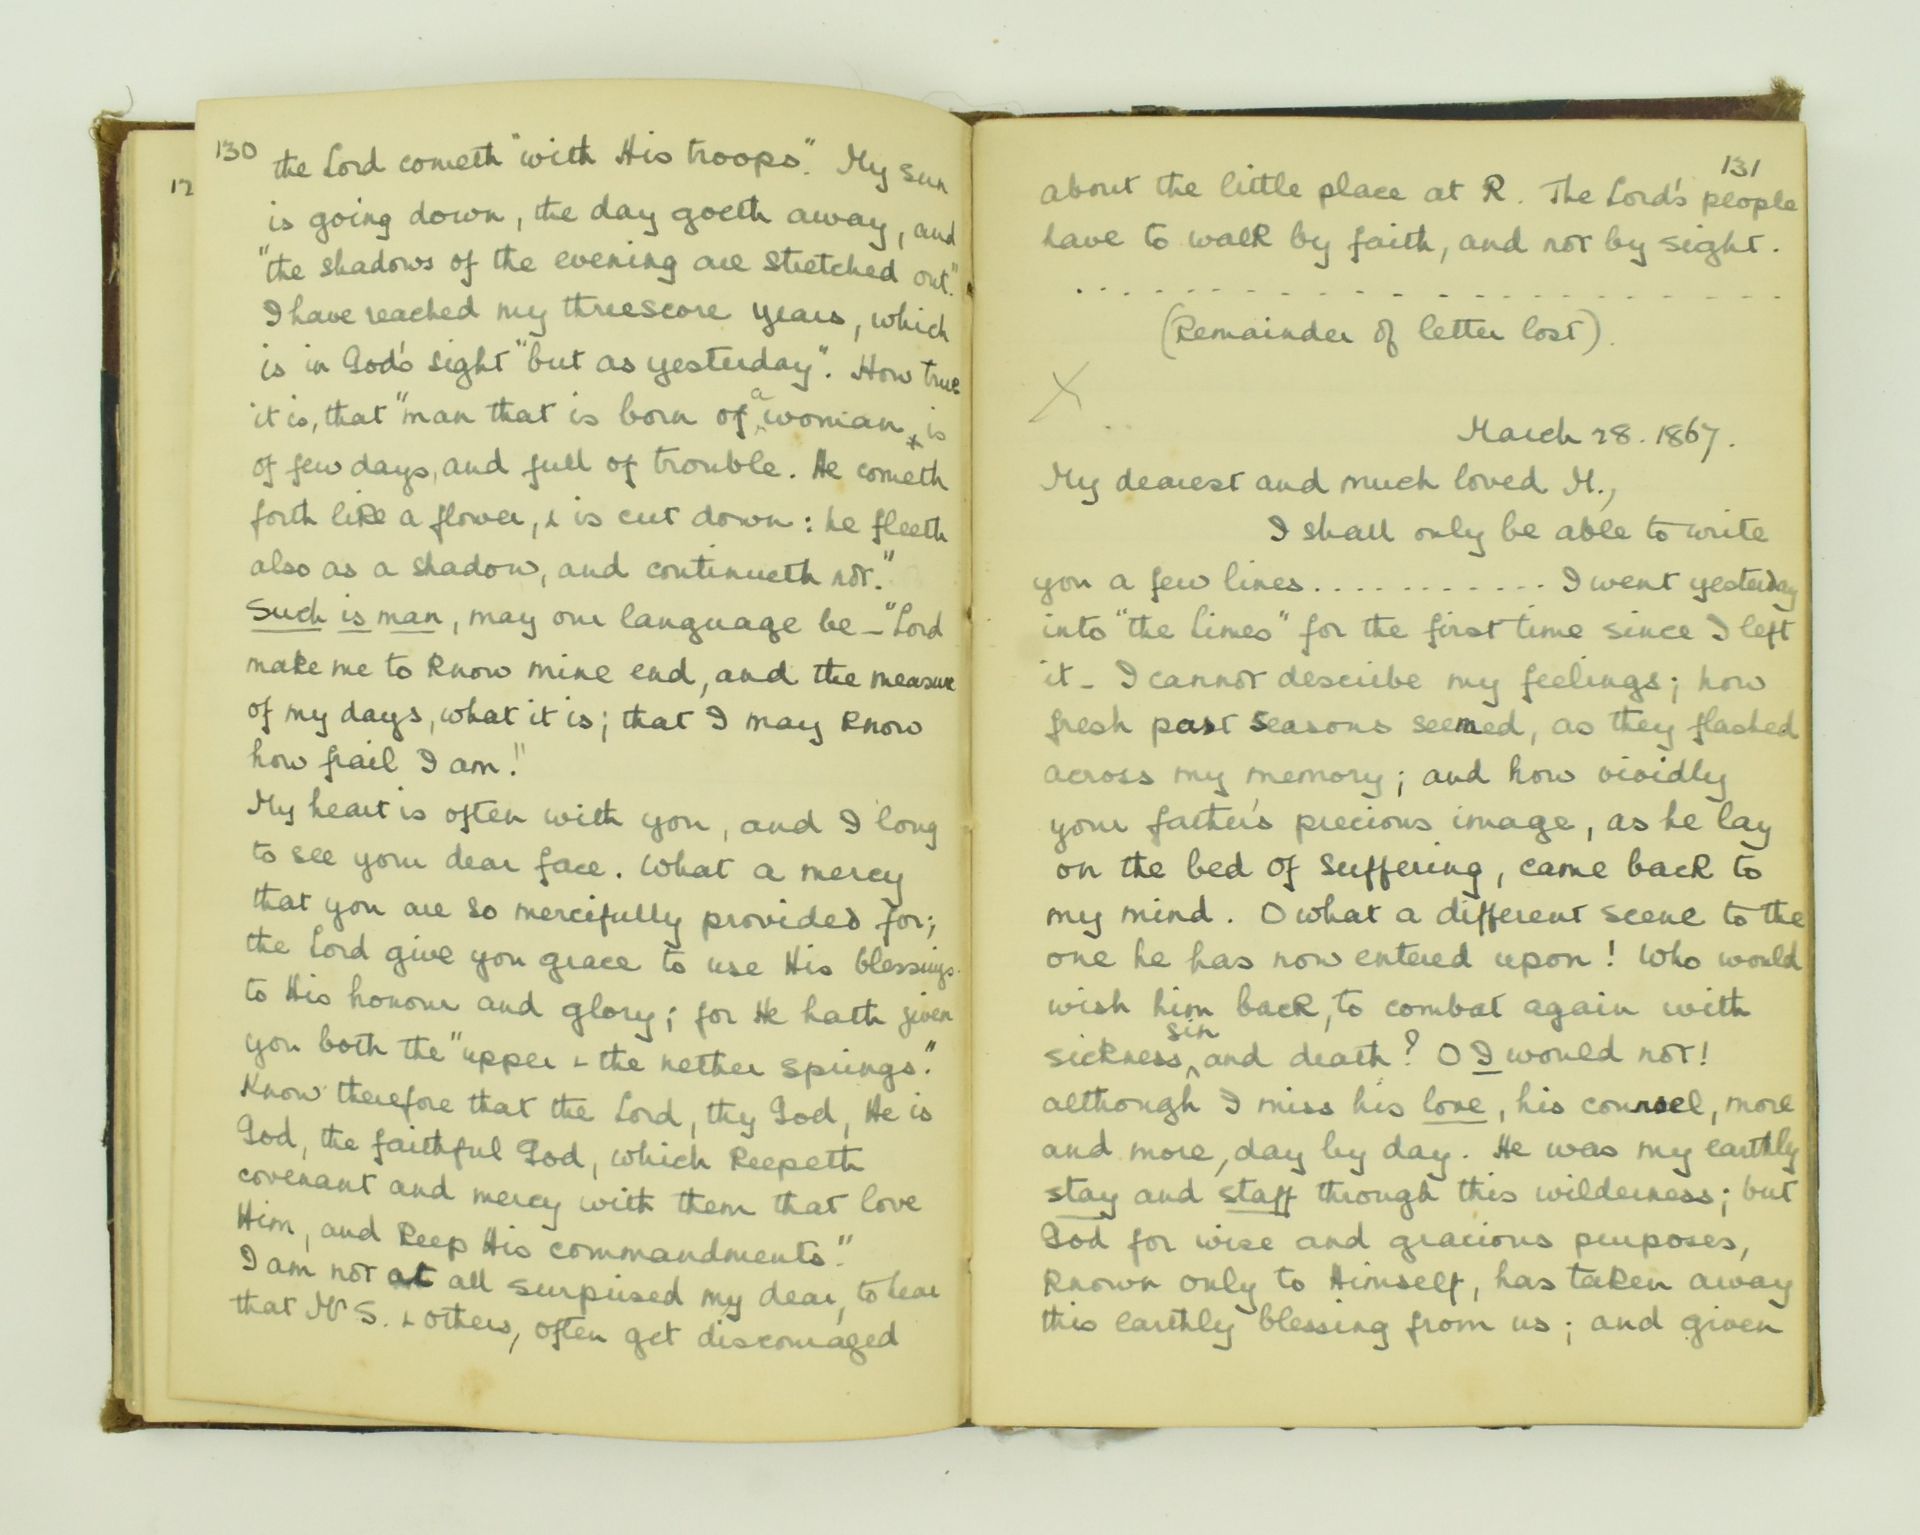 130
the Lord cometh "with His troops". My sun
is going down, the day goeth away, and
"the shadows of the evening are stretched out".
I have reached my threescore years, which
is in God's sight "but as yesterday". How true
it is, that "man that is born of a woman, is
of few days, and full of trouble. He cometh
forth like a flower, & is cut down: he fleeth
also as a shadow, and continueth not."
Such is man, may our language be - "Lord
make me to know mine end, and the measure
of my days, what it is; that I may know
how frail I am!"
My heart is often with you, and I long
to see your dear face. What a mercy
that you are so mercifully provided for;
the Lord give you grace to use His blessings
to His honour and glory; for He hath given
you both the "upper & the nether springs."
Know therefore that the Lord, thy God, He is
God, the faithful God, which keepeth
covenant and mercy with them that love
Him, and keep His commandments."
I am not at all surprised my dear, to hear
that Mr S. & others, often get discouraged
12
131
about the little place at R. The Lord's people
have to walk by faith, and not by sight.
. . . . . . . . . . . . . . . . . . . . . . . .
(Remainder of letter lost).
X
March 28. 1867.
My dearest and much loved M.,
I shall only be able to write
you a few lines . . . . . . . . . . . . I went yesterday
into "the Limes" for the first time since I left
it - I cannot describe my feelings; how
fresh past seasons seemed, as they flashed
across my memory; and how vividly
your father's precious image, as he lay
on the bed of suffering, came back to
my mind. O what a different scene to the
one he has now entered upon! Who would
wish him back, to combat again with
sickness, sin and death? O I would not!
although I miss his love, his counsel, more
and more, day by day. He was my earthly
stay and staff through this wilderness; but
God for wise and gracious purposes,
known only to Himself, has taken away
this earthly blessing from us; and given